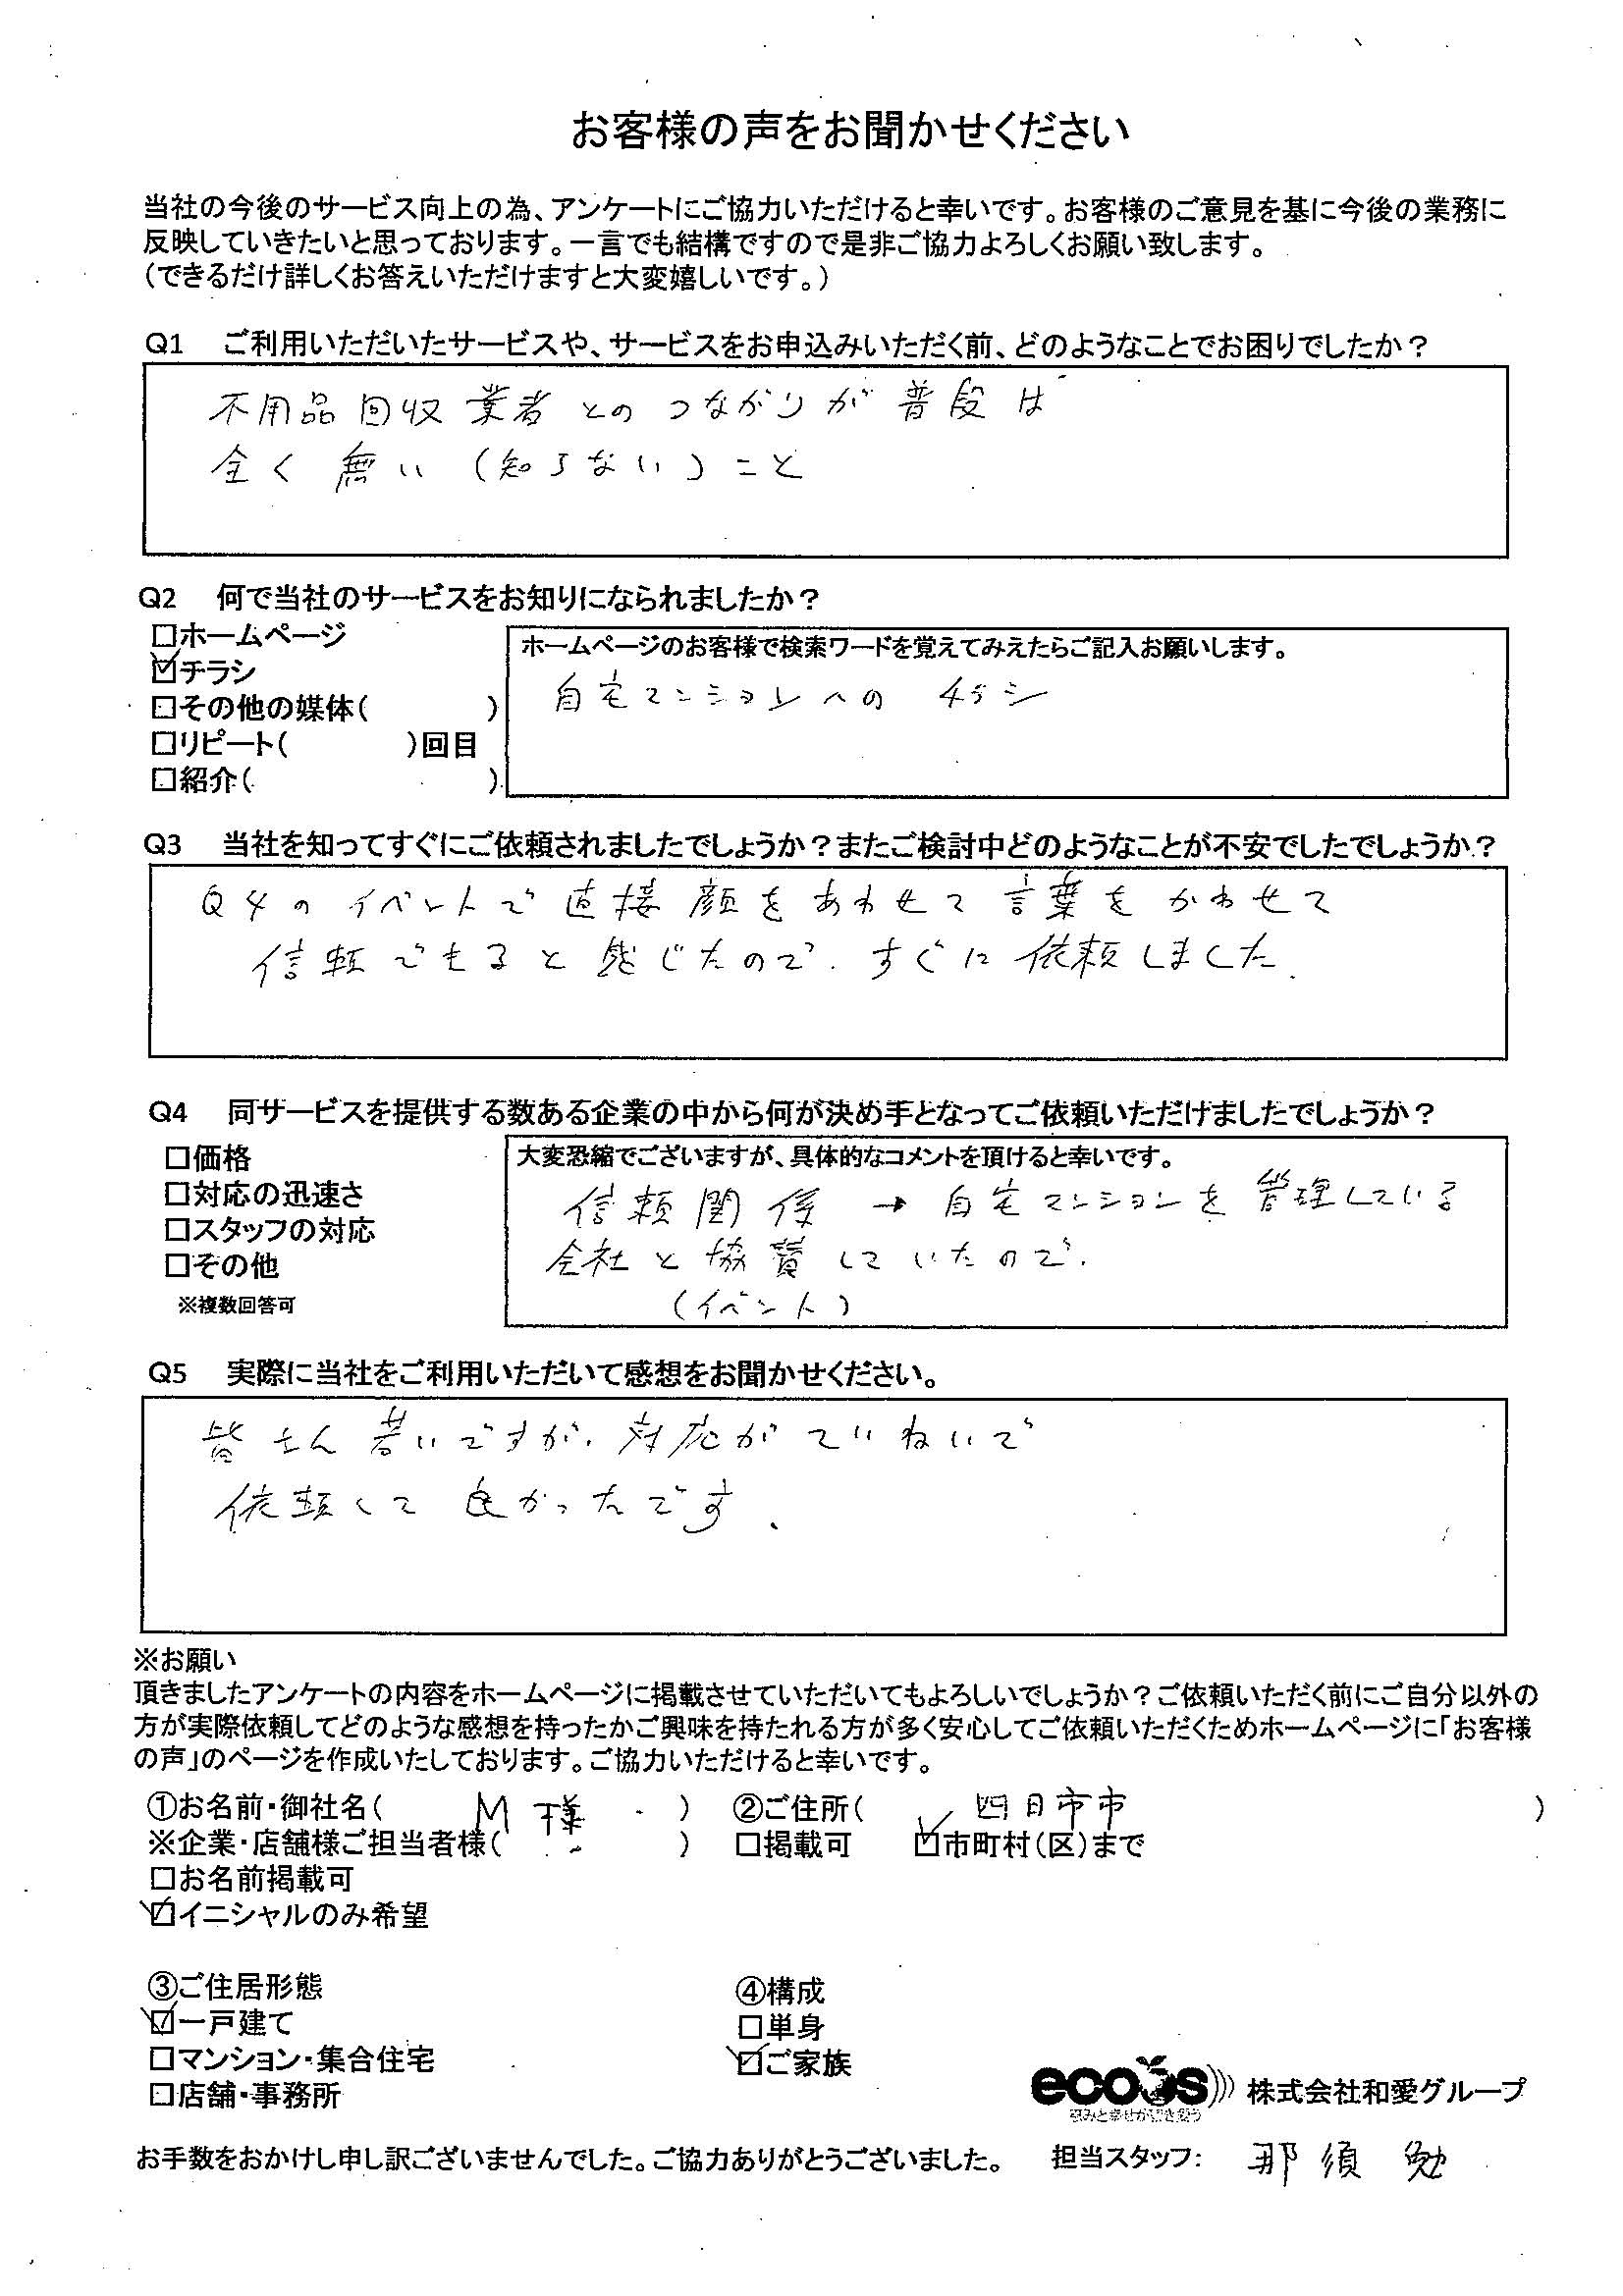 お客様の声をお聞かせください
当社の今後のサービス向上の為、アンケートにご協力いただけると幸いです。お客様のご意見を基に今後の業務に
反映していきたいと思っております。一言でも結構ですので是非ご協力よろしくお願い致します。
(できるだけ詳しくお答えいただけますと大変嬉しいです。)
Q1 ご利用いただいたサービスや、サービスをお申込みいただく前、どのようなことでお困りでしたか?
不用品回収業者とのつながりが普段は
全く無い(知らない)こと
Q2 何で当社のサービスをお知りになられましたか?
□ホームページ
☑チラシ
□その他の媒体( )
□リピート( )回目
□紹介( )
ホームページのお客様で検索ワードを覚えてみえたらご記入お願いします。
自宅マンションへの チラシ
Q3 当社を知ってすぐにご依頼されましたでしょうか?またご検討中どのようなことが不安でしたでしょうか?
Q4のイベントで直接顔をあわせて言葉をかわせて
信頼できると感じたので、すぐに依頼しました。
Q4 同サービスを提供する数ある企業の中から何が決め手となってご依頼いただけましたでしょうか?
□価格
□対応の迅速さ
□スタッフの対応
□その他
※複数回答可
大変恐縮でございますが、具体的なコメントを頂けると幸いです。
信頼関係 → 自宅マンションを管理している
会社と協賛していたので、
(イベント)
Q5 実際に当社をご利用いただいて感想をお聞かせください。
皆さん若いですが、対応がていねいで
依頼して良かったです。
※お願い
頂きましたアンケートの内容をホームページに掲載させていただいてもよろしいでしょうか?ご依頼いただく前にご自分以外の
方が実際依頼してどのような感想を持ったかご興味を持たれる方が多く安心してご依頼いただくためホームページに「お客様
の声」のページを作成いたしております。ご協力いただけると幸いです。
①お名前・御社名( M様 ) ②ご住所( 四日市市 )
※企業・店舗様ご担当者様( ) □掲載可 ☑市町村(区)まで
□お名前掲載可
☑イニシャルのみ希望
③ご住居形態 ④構成
☑一戸建て □単身
□マンション・集合住宅 ☑ご家族
□店舗・事務所
ecoos 株式会社和愛グループ
お手数をおかけし申し訳ございませんでした。ご協力ありがとうございました。 担当スタッフ: 那須 勉